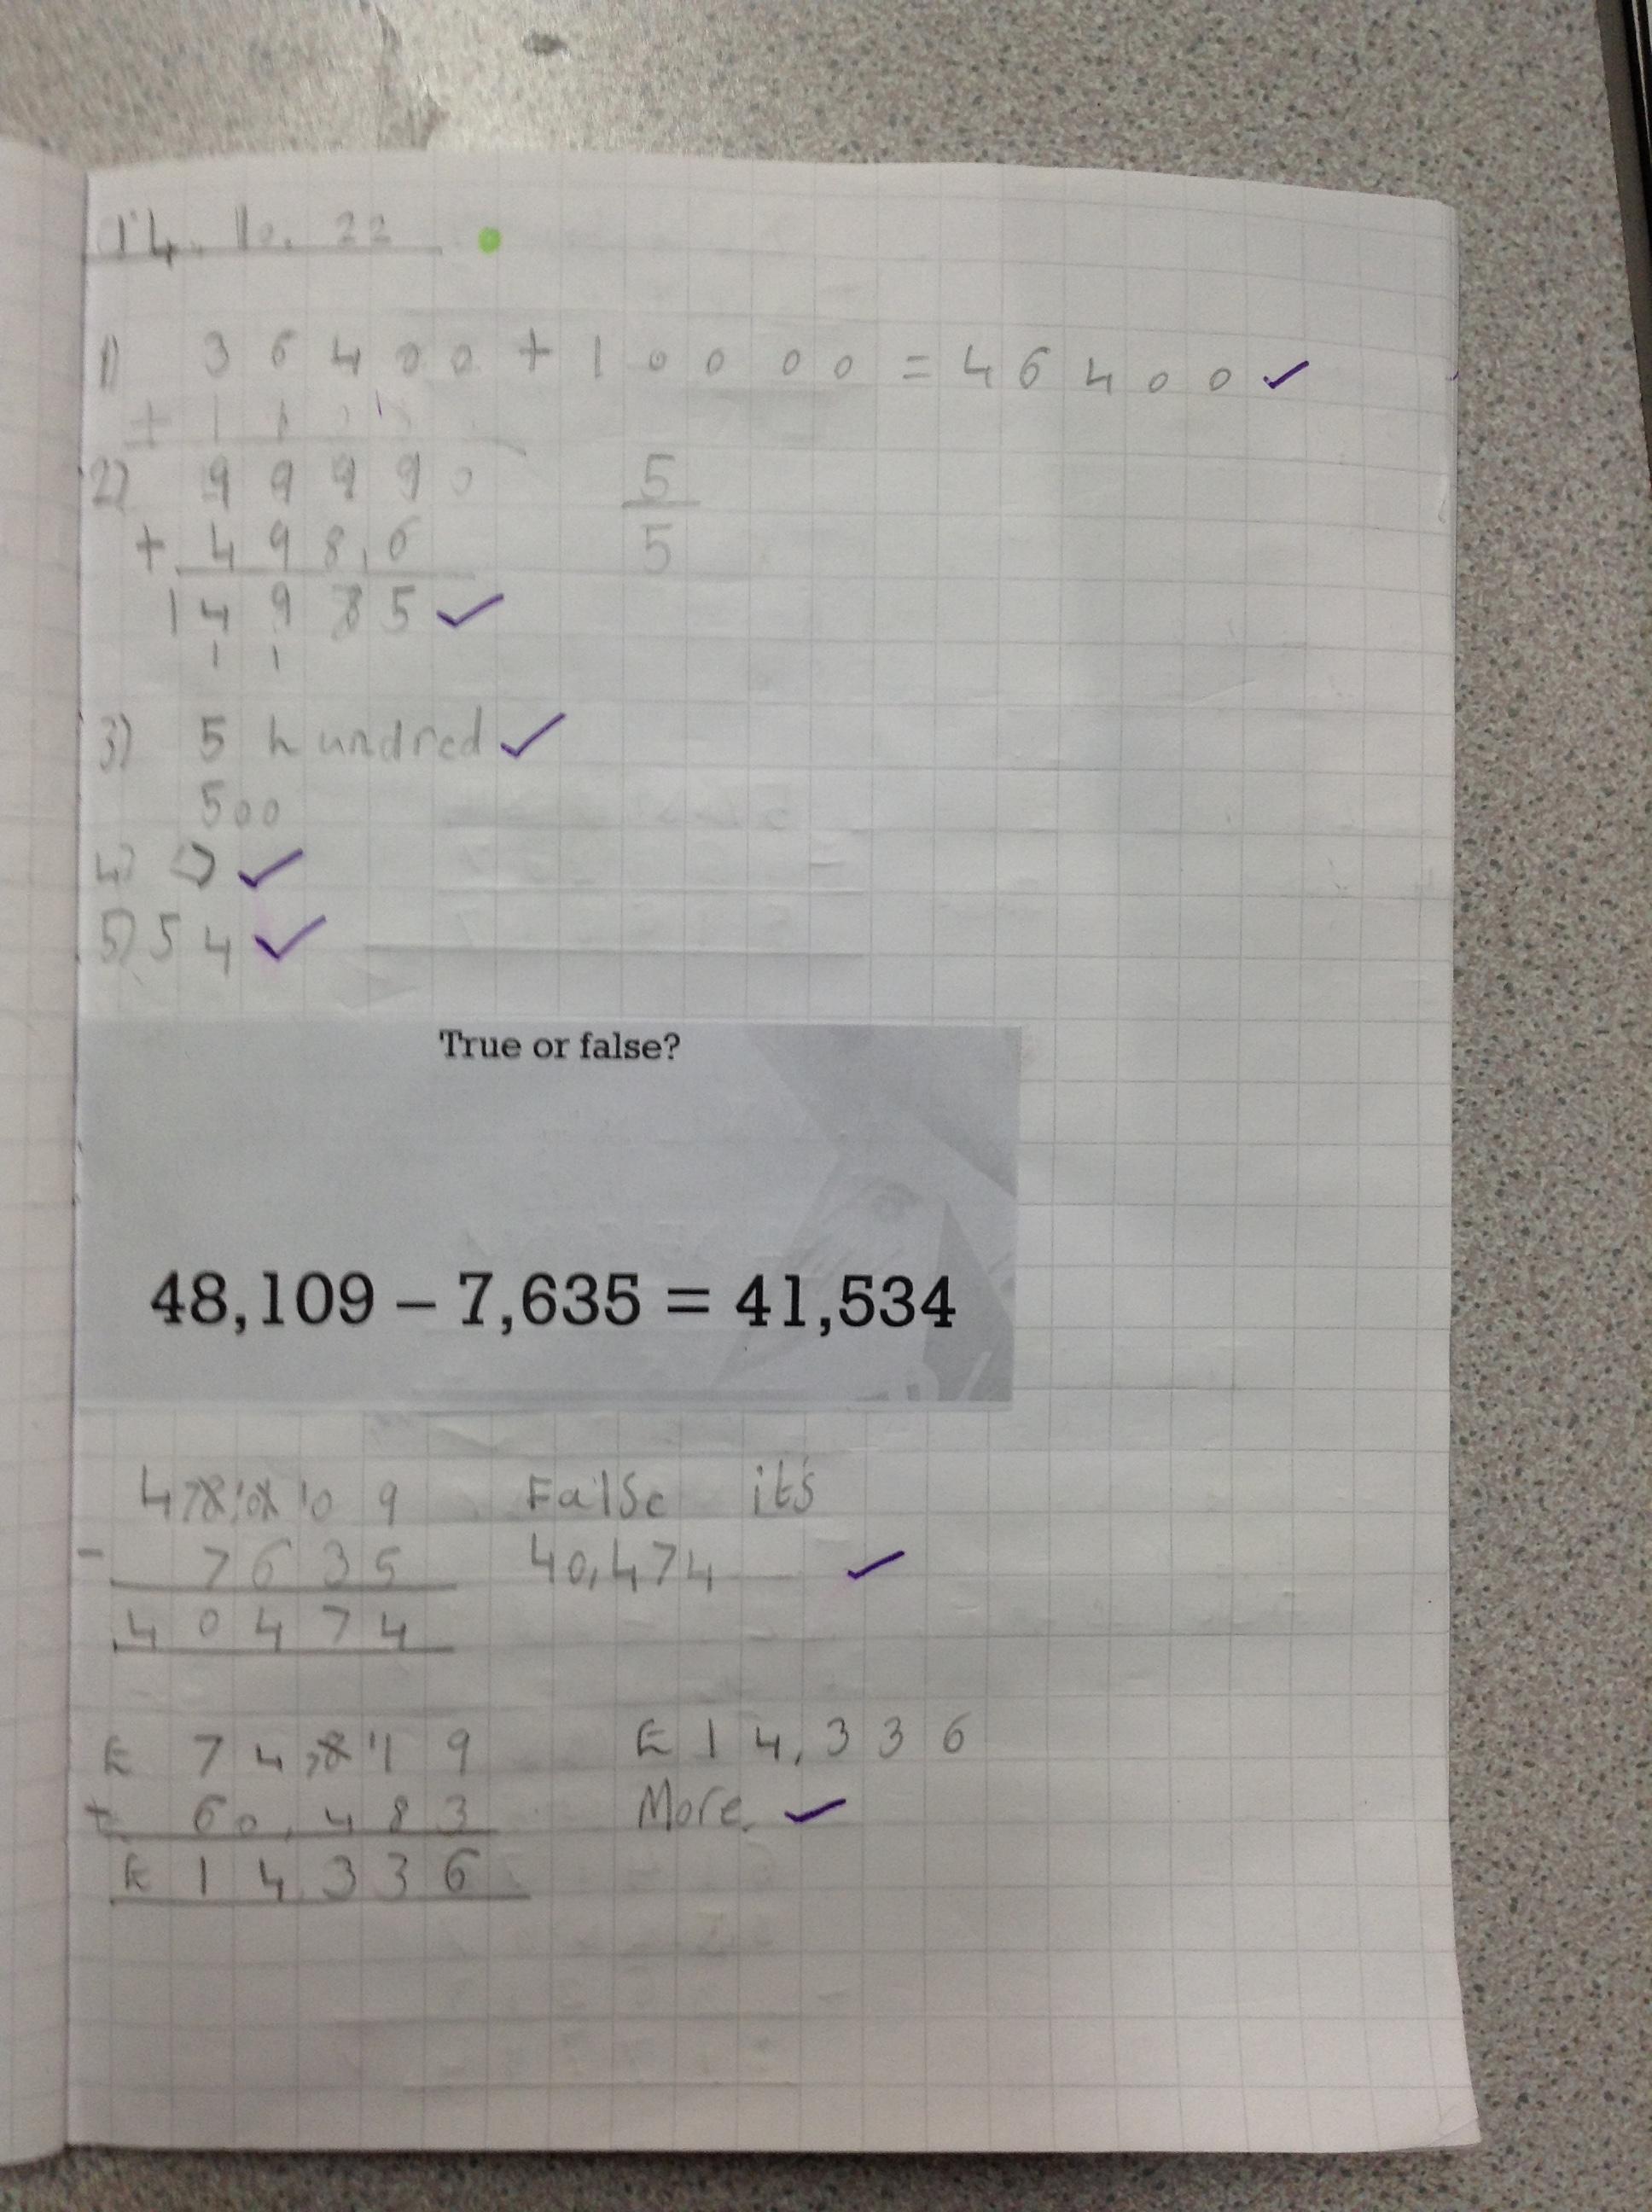 14. 10. 22
1) 36400 + 10000 = 46400
2) 9999 0
+ 4986
14985
1 1
5
5
3) 5 hundred
500
4)
5) 54
True or false?
48,109 – 7,635 = 41,534
4 7 8 10 1 10 9
- 7635
40474
False it's
40,474
£ 74,819
- 60,483
£ 14336
£14,336
More.